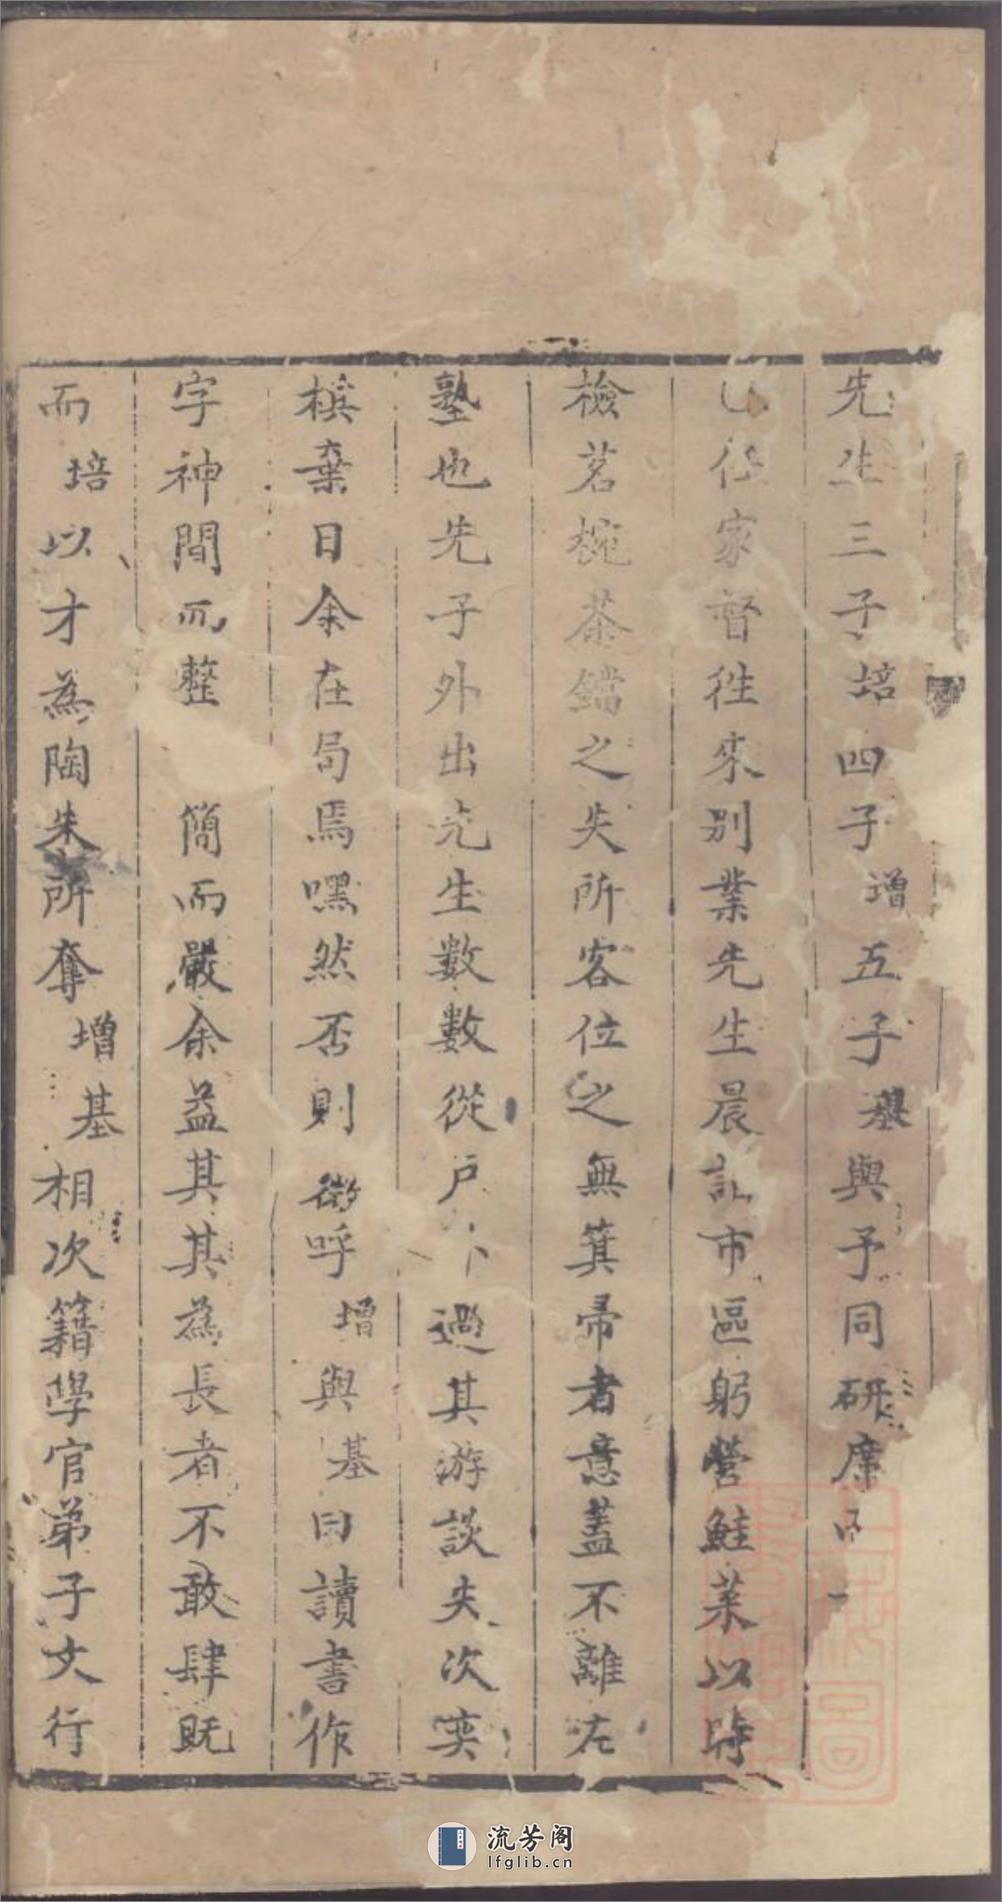 先生三子培四子增五子基與予同研席
家督徃來別業先生晨記市區躬營鮭菜以時
檢茗椀茶鐺之失所客位之無箕帚者意蓋不離左
塾也先子外出先生數數從戶過其游談失次奕
棋棄日余在局焉嘿然否則微呼增與基曰讀書作
字神間而整簡而嚴余益其其為長者不敢肆既
而培以才為陶朱所奪增基相次籍學官弟子文行
流芳阁
lfglib.cn